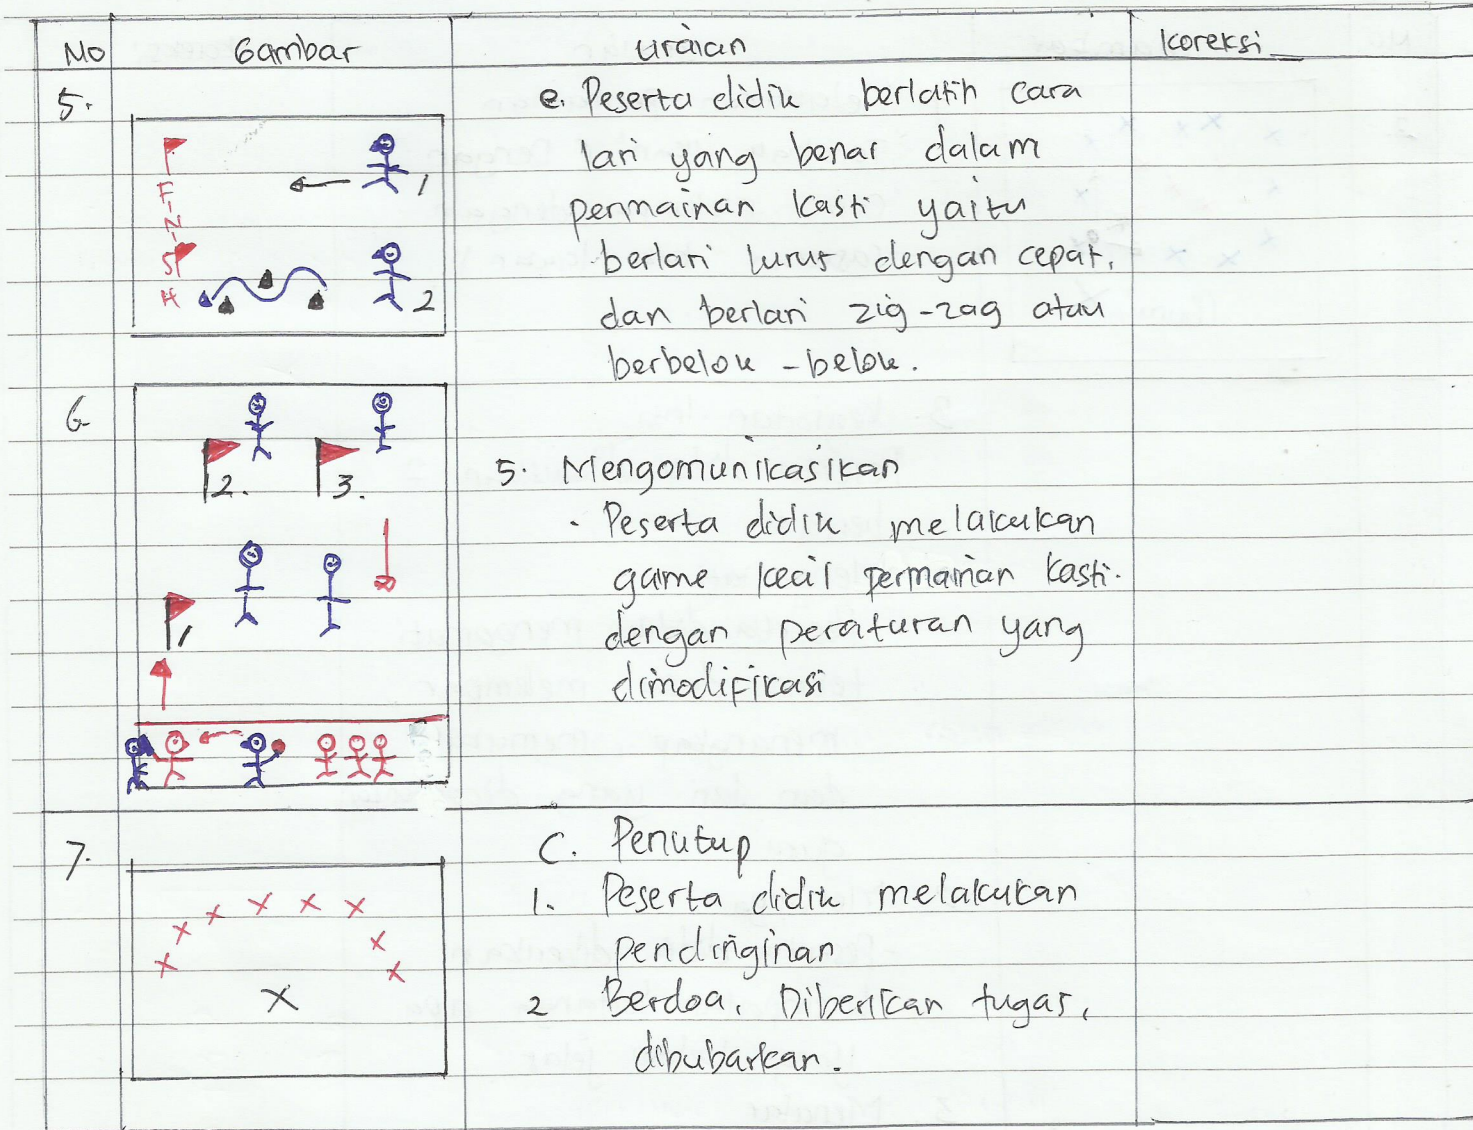 No Gambar Uraian Koreksi
5. e. Peserta didik berlatih cara
lari yang benar dalam
permainan kasti yaitu
berlari lurus dengan cepat,
dan berlari zig-zag atau
berbelok - belok.
FINISH
1
2
6. 5. Mengomunikasikan
- Peserta didik melakukan
game kecil permainan kasti.
dengan peraturan yang
dimodifikasi
2. 3.
1
7. C. Penutup
1. Peserta didik melakukan
pendinginan
2 Berdoa, Diberikan tugas,
dibubarkan.